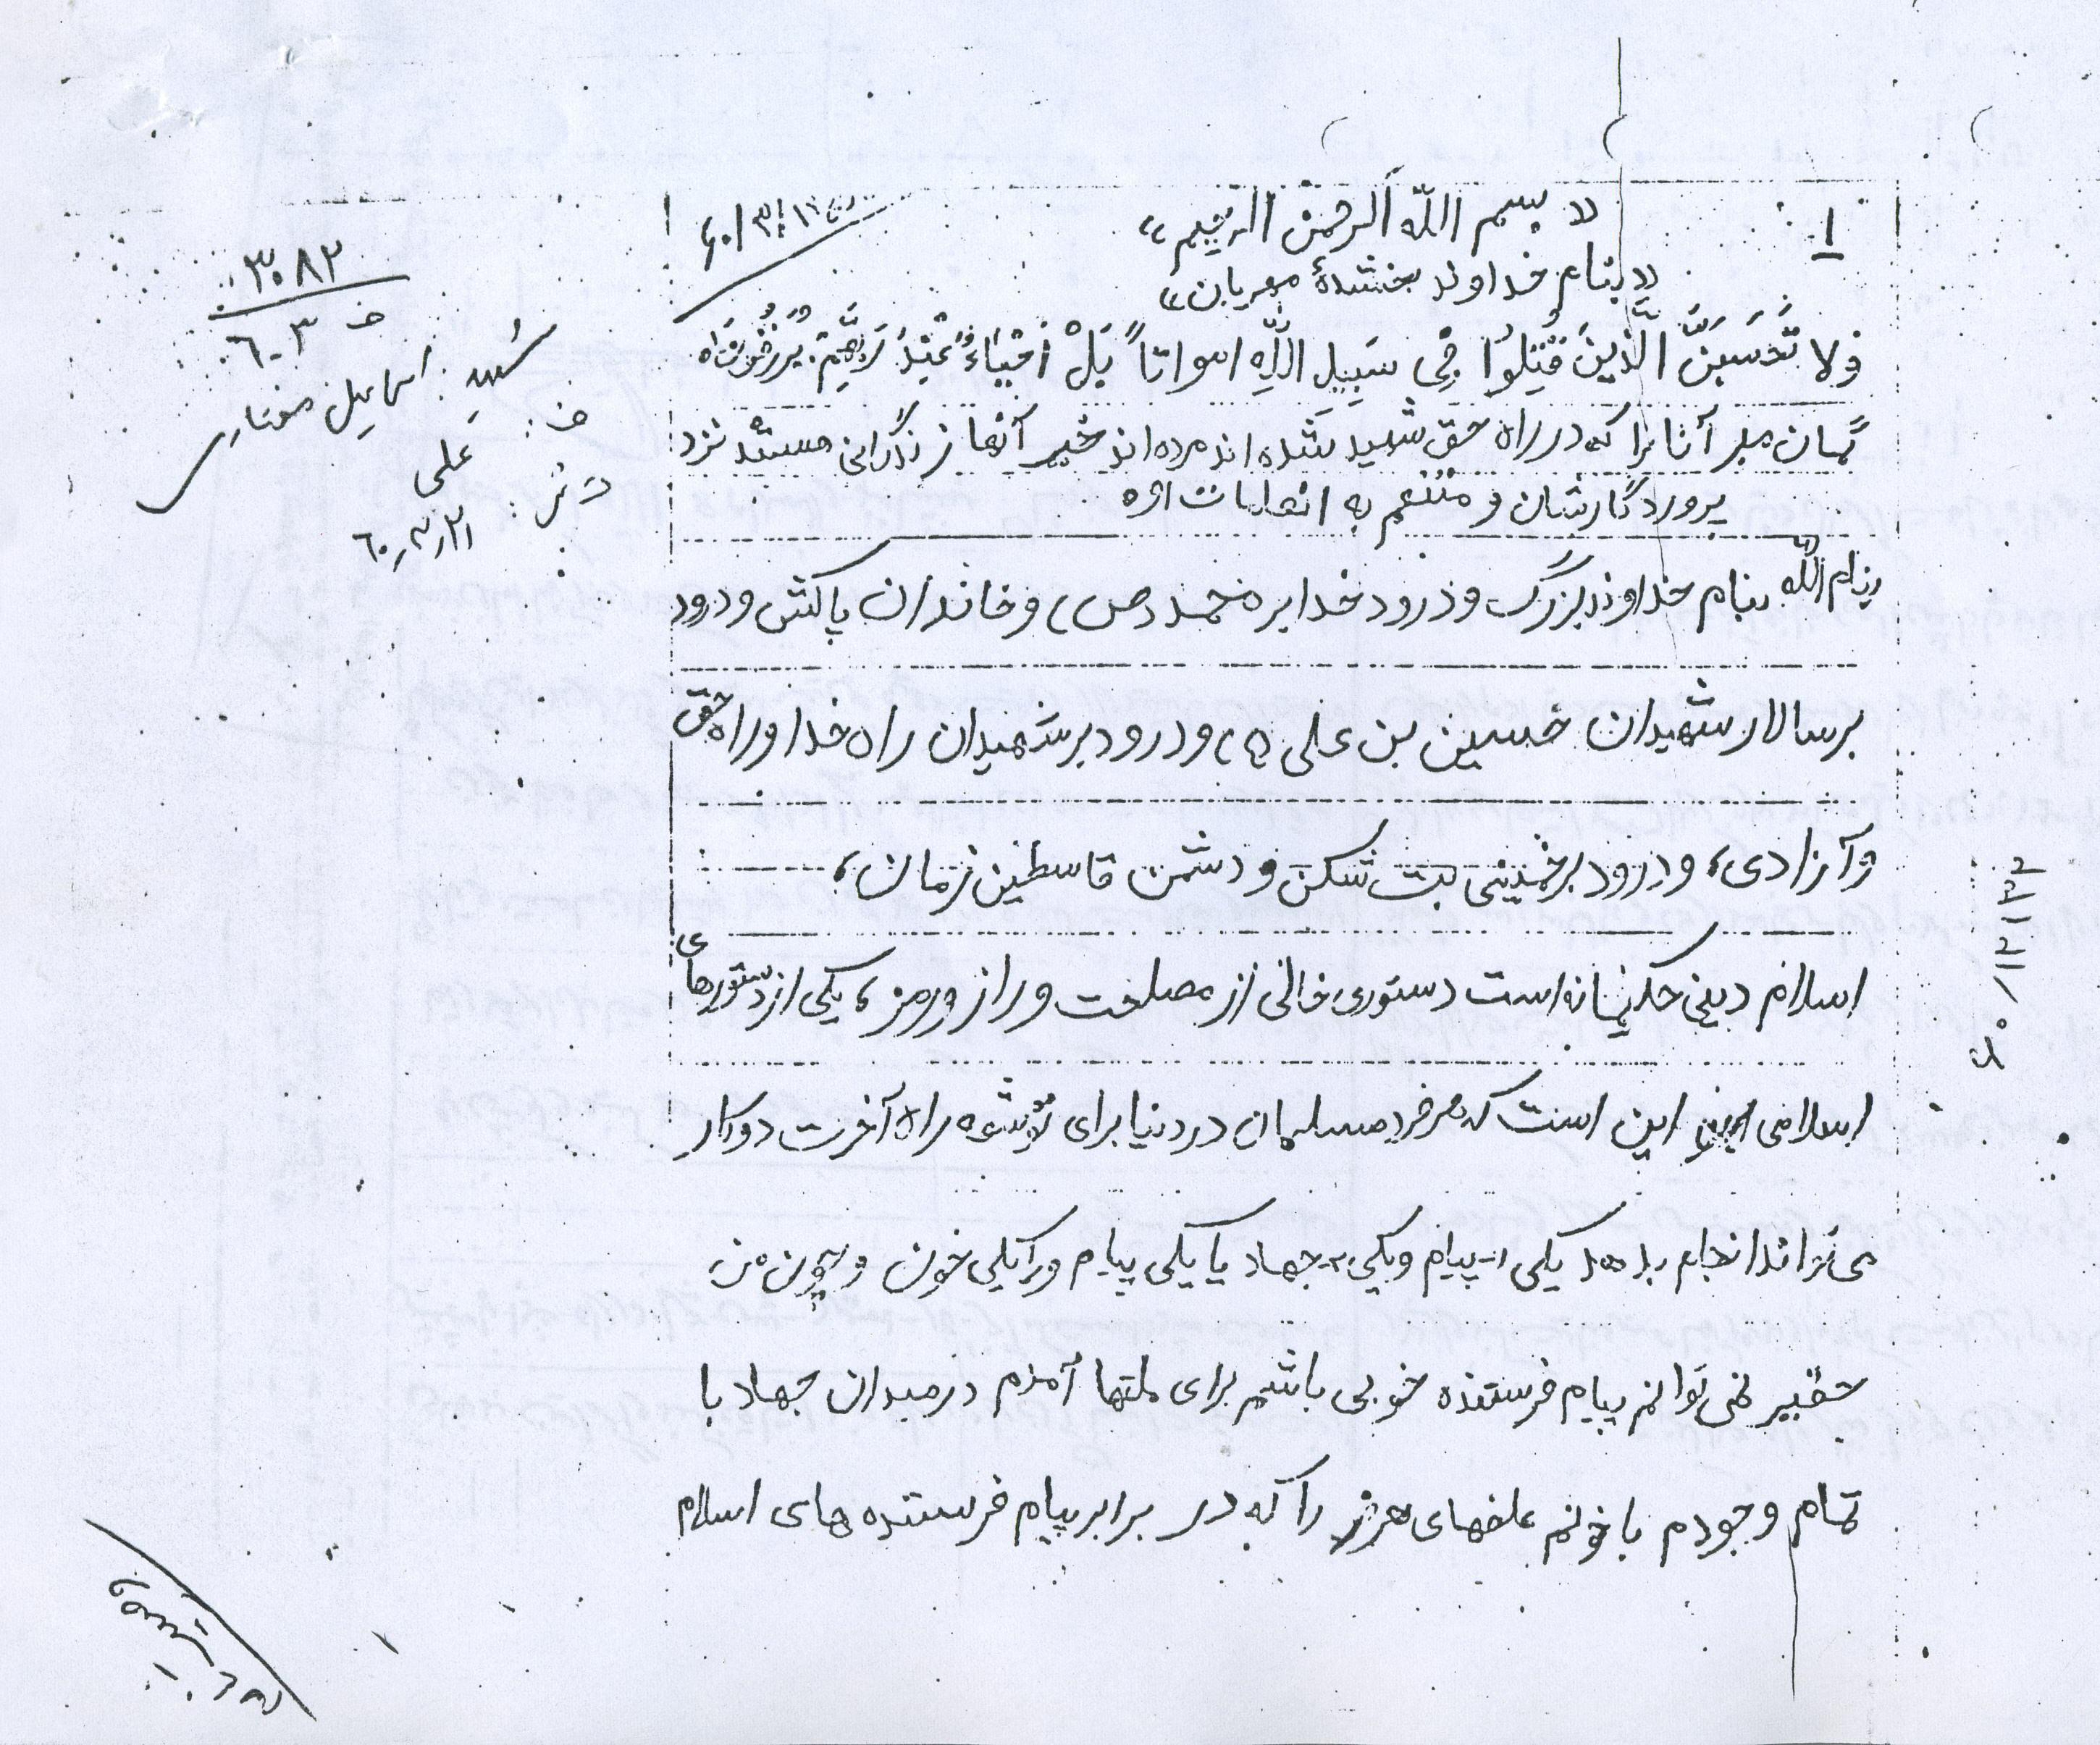 ۱
« بسم اللّه الرحمن الرحیم »
« بنام خداوند بخشندهٔ مهربان »
وَلا تَحسَبَنَّ الَّذینَ قُتِلُوا فِی سَبِیلِ اللّهِ امواتاً بَلْ اَحْیَاءٌ عِنْدَ رَبِّهِمْ یُرْزَقُونَ
گمان مبر آنانرا که در راه حق شهید شده اند مرده اند خیر آنها زندگانی هستند نزد
پروردگارشان و متنعم به انعامات او
بنام اللّه بنام خداوند بزرگ و درود خدا بر محمد (ص) و خاندان پاکش و درود
بر سالار شهیدان حسین بن علی (ع) و درود بر شهیدان راه خدا و راه حق
و آزادی، و درود بر خمینی بت شکن و دشمن قاسطین زمان،
اسلام دینی حکیمانه است دستوری خالی از مصلحت و راز و رمز، یکی از دستورهای
اسلامی این است که هر فرد مسلمان در دنیا برای توشه راه آخرت دو کار
می تواند انجام بدهد یکی ۱- پیام و یکی ۲- جهاد یا یکی پیام و یکی خون و چون من
حقیر نمی توانم پیام فرستنده خوبی باشم برای ملتها آمدم در میدان جهاد با
تمام وجودم با خونم علفهای هرز را که در برابر پیام فرستنده های اسلام
۳۰۸۲
ف ۶۰۳
شهید: اسماعیل مختاری
ف: علی
۶۰/۳/۲۱